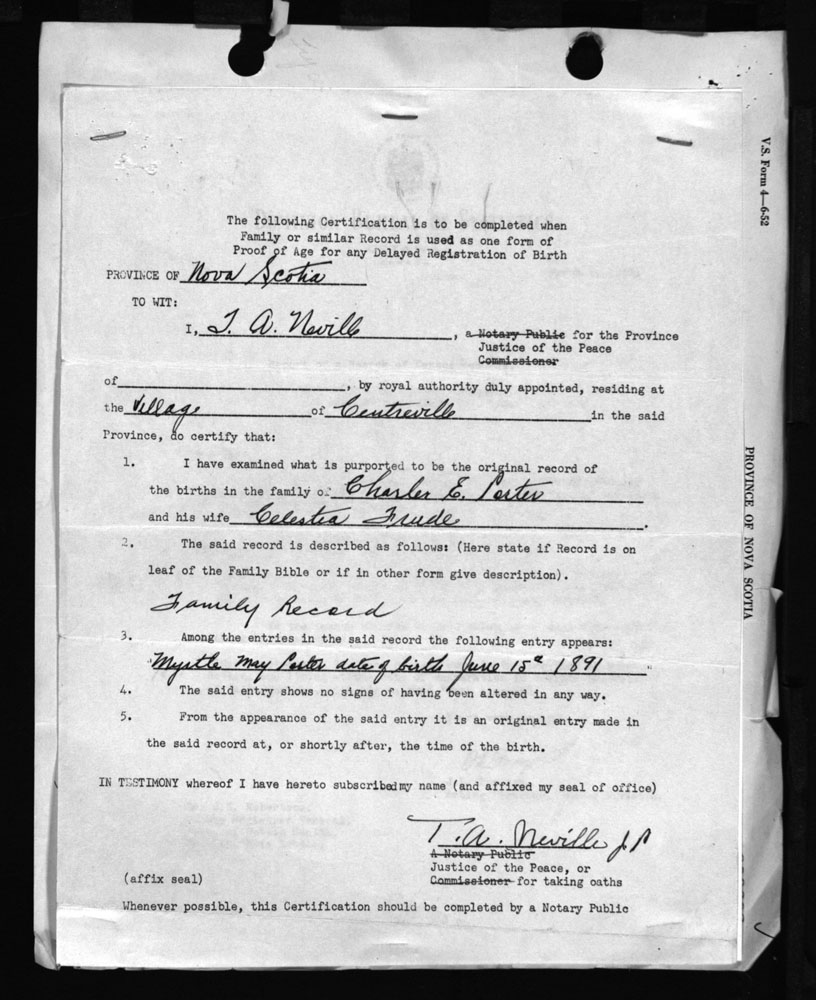 The following Certification is to be completed when
Family or similar Record is used as one form of
Proof of Age for any Delayed Registration of Birth
PROVINCE OF Nova Scotia
TO WIT:
I, T. A. Neville, a Notary Public for the Province
Justice of the Peace
Commissioner
of , by royal authority duly appointed, residing at
the Village of Centreville in the said
Province, do certify that:
1. I have examined what is purported to be the original record of
the births in the family of Charles E. Porter
and his wife Celestia Frude.
2. The said record is described as follows: (Here state if Record is on
leaf of the Family Bible or if in other form give description).
Family Record
3. Among the entries in the said record the following entry appears:
"Myrtle May Porter date of birth June 15th 1891"
4. The said entry shows no signs of having been altered in any way.
5. From the appearance of the said entry it is an original entry made in
the said record at, or shortly after, the time of the birth.
IN TESTIMONY whereof I have hereto subscribed my name (and affixed my seal of office)
T. A. Neville J P
A Notary Public
Justice of the Peace, or
(affix seal) Commissioner for taking oaths
Whenever possible, this Certification should be completed by a Notary Public
V.S. Form 4—6-52
PROVINCE OF NOVA SCOTIA